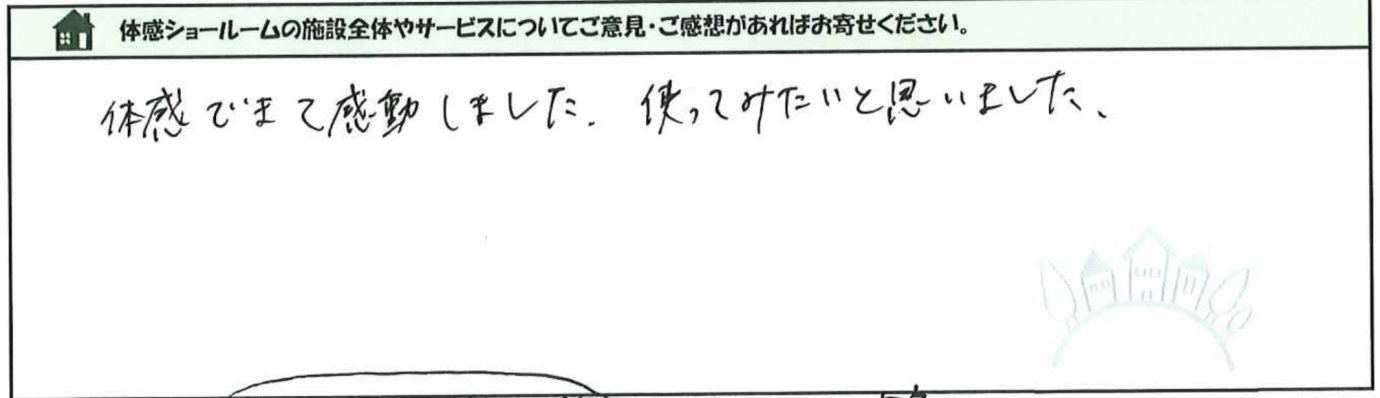 体感ショールームの施設全体やサービスについてご意見・ご感想があればお寄せください。
体感できて感動しました。使ってみたいと思いました、